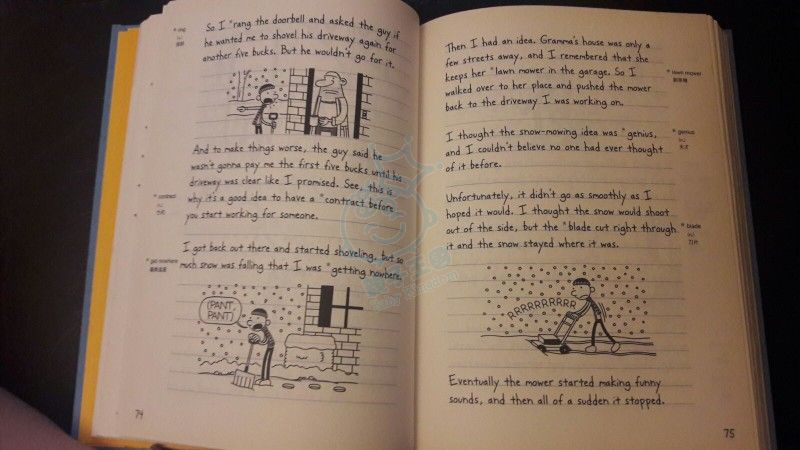 So I *rang the doorbell and asked the guy if
he wanted me to shovel his driveway again for
another five bucks. But he wouldn't go for it.
And to make things worse, the guy said he
wasn't gonna pay me the first five bucks until his
driveway was clear like I promised. See, this is
why it's a good idea to have a *contract before
you start working for someone.
* contract
I got back out there and started shoveling, but so
much snow was falling that I was *getting nowhere.
* get nowhere
(PANT, PANT)
74
Then I had an idea. Gramma's house was only a
few streets away, and I remembered that she
keeps her *lawn mower in the garage. So I
walked over to her place and pushed the mower
back to the driveway I was working on.
* lawn mower
I thought the snow-mowing idea was *genius,
and I couldn't believe no one had ever thought
of it before.
* genius
(n.)
天才
Unfortunately, it didn't go as smoothly as I
hoped it would. I thought the snow would shoot
out of the side, but the *blade cut right through
it and the snow stayed where it was.
* blade
(n.)
刀片
RRRRRRRRR
Eventually the mower started making funny
sounds, and then all of a sudden it stopped.
75